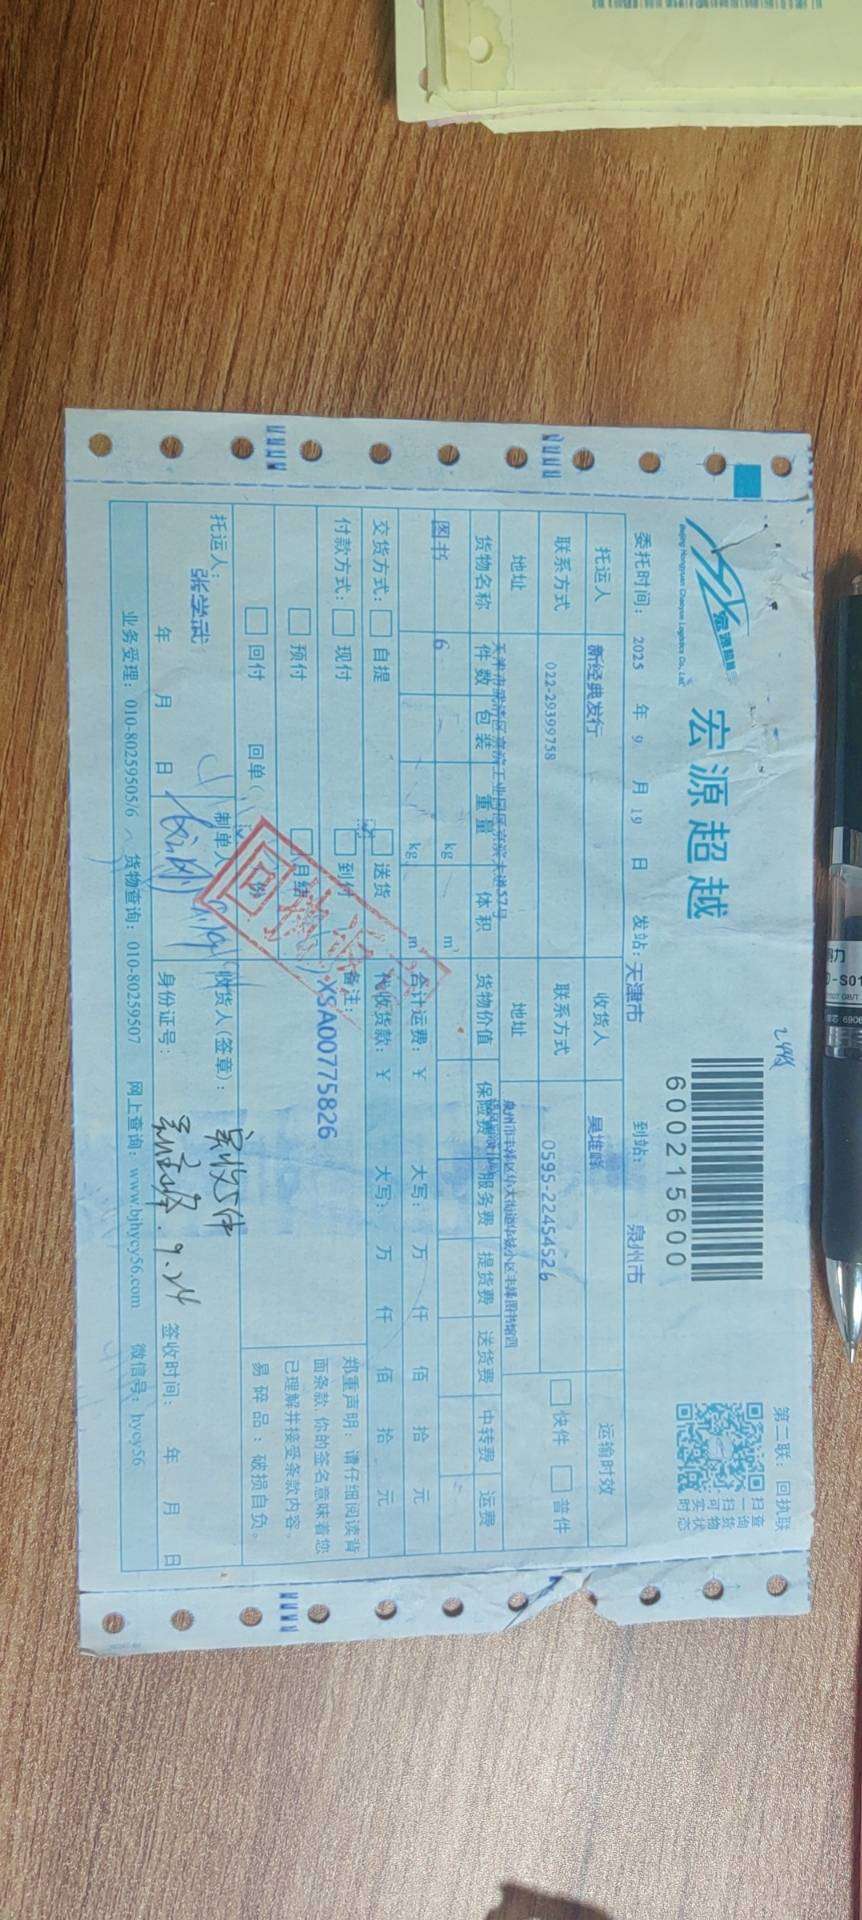 第二联：回执联
宏源超越
Beijing Hongyuan Chaoyue Logistics Co., Ltd.
宏源超越
600215600
扫一扫
查询货物实时状态
委托时间：2025 年 9 月 19 日 发站：天津市 到站：泉州市
托运人 新经典发行 收货人 吴堆峰 运输时效
联系方式 022-29399758 联系方式 0595-22454526 快件 普件
地址 地址
货物名称 件数 包装 重量 体积 货物价值 保险费 服务费 提货费 送货费 中转费 运费
图书 6 kg m³
kg m
合计运费：￥ 大写： 万 仟 佰 拾 元
交货方式： 自提 送货 代收货款：￥ 大写： 万 仟 佰 拾 元
付款方式： 现付 到付 备注：
预付 月结 XSA00775826
回付 回单（ 份
郑重声明：请仔细阅读背
面条款，你的签名意味着您
已理解并接受条款内容。
易碎品：破损自负。
托运人： 制单人 收货人(签章)： 实收5件
张学武
年 月 日 身份证号： 9.24 签收时间： 年 月 日
业务受理：010-80259505/6 货物查询：010-80259507 网上查询：www.bjhycy56.com 微信号：hycy56
-S01